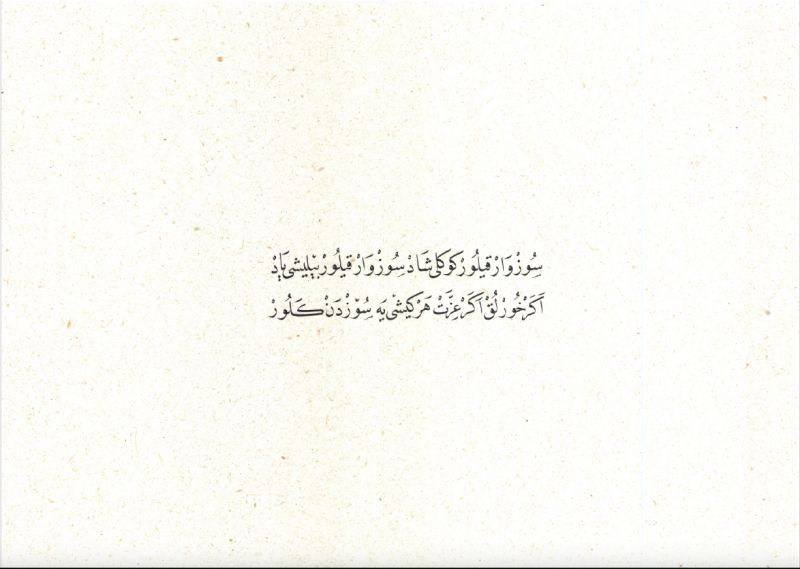 سُوزْ وَارْ قيلُورْ كوكلى شَادْ سُوزْ وَارْ قيلُورْ بيليشى يَادْ
اَكَرْ خُورْلُقْ اَكَرْ عِزَّتْ هَرْ كيشى يَه سُوزْدَنْ كَلُورْ